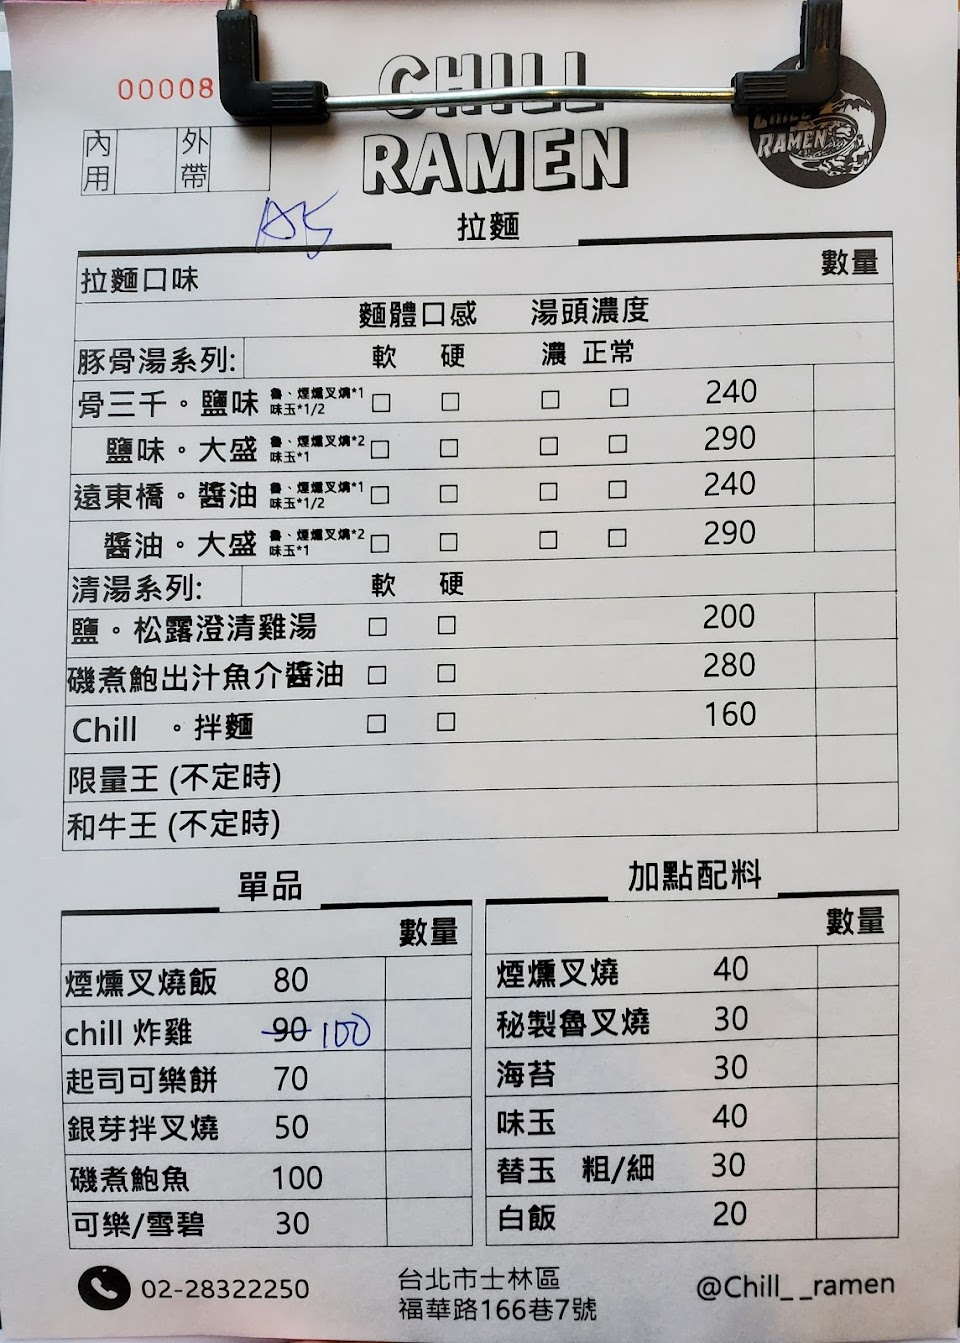 00008
CHILL
RAMEN
CHILL
RAMEN
內用 外帶
A5
拉麵
拉麵口味 數量
麵體口感 湯頭濃度
豚骨湯系列: 軟 硬 濃 正常
骨三千。鹽味 魯、煙燻叉燒*1 味玉*1/2 □ □ □ □ 240
鹽味。大盛 魯、煙燻叉燒*2 味玉*1 □ □ □ □ 290
遠東橋。醬油 魯、煙燻叉燒*1 味玉*1/2 □ □ □ □ 240
醬油。大盛 魯、煙燻叉燒*2 味玉*1 □ □ □ □ 290
清湯系列: 軟 硬
鹽。松露澄清雞湯 □ □ 200
磯煮鮑出汁魚介醬油 □ □ 280
Chill 。拌麵 □ □ 160
限量王 (不定時)
和牛王 (不定時)
單品
數量
煙燻叉燒飯 80
chill 炸雞 90 100
起司可樂餅 70
銀芽拌叉燒 50
磯煮鮑魚 100
可樂/雪碧 30
加點配料
數量
煙燻叉燒 40
秘製魯叉燒 30
海苔 30
味玉 40
替玉 粗/細 30
白飯 20
02-28322250
台北市士林區
福華路166巷7號
@Chill_ _ramen